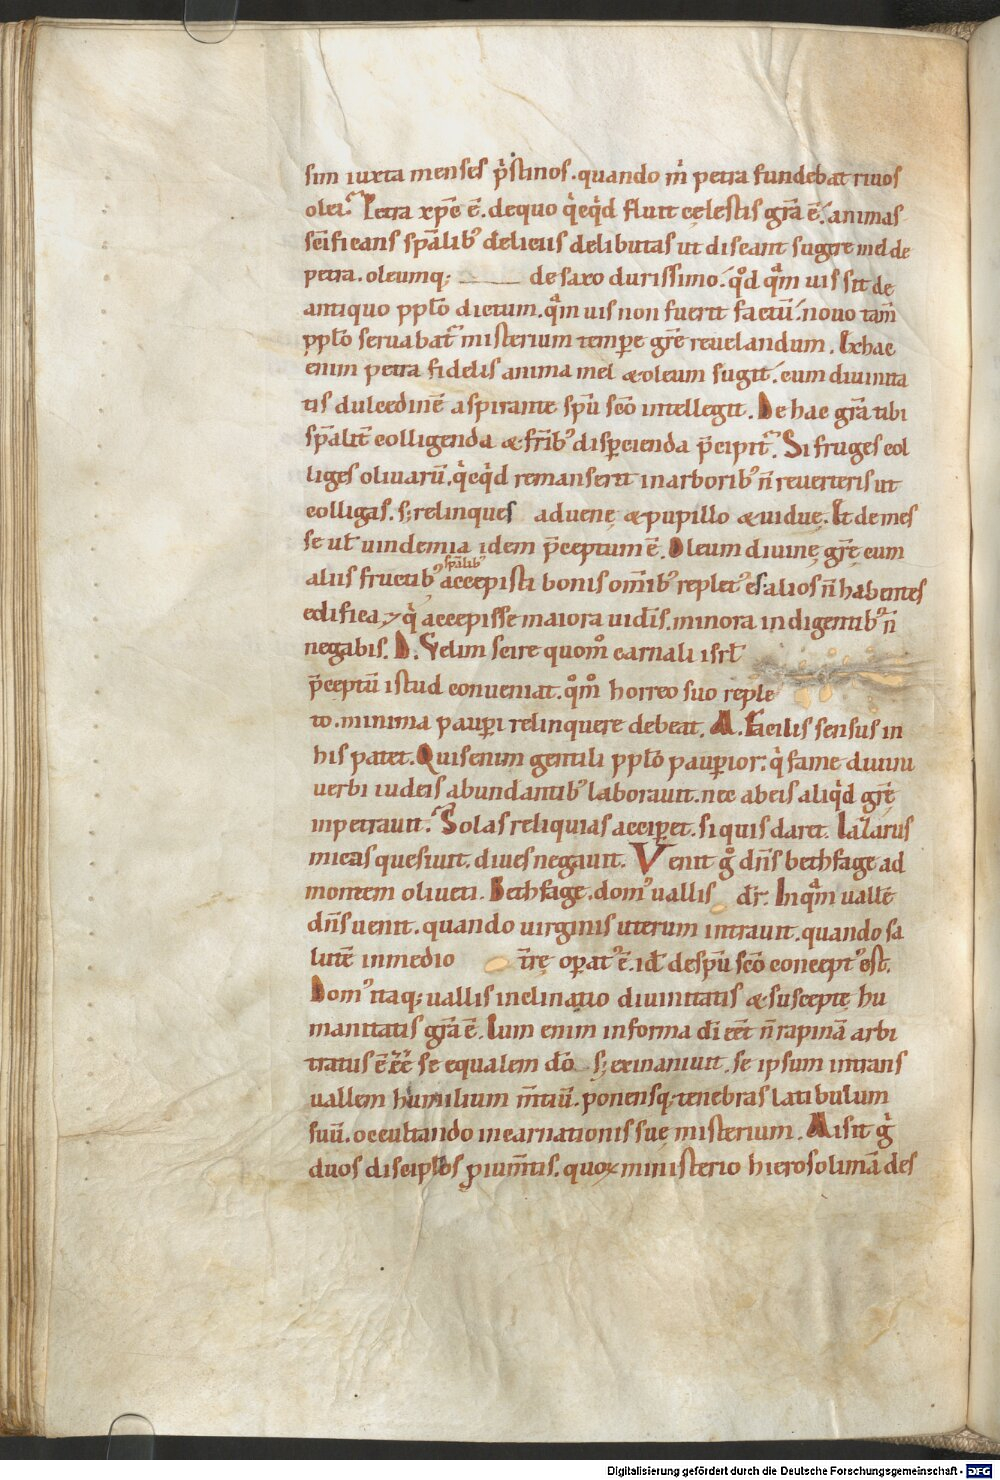 sim iuxta menses p̓stinos. quando m̓ petra fundebat riuos
olei. Petra xp̄c ē. de quo q̓cq̓d fluit cęlestis gr̄a ē. animas
sc̄ificans sp̄alib᾽ deliciis delibutas ut discant sugere mel de
petra. oleumq; de saxo durissimo. qd̓ qᵃm uis sit de
antiquo pplo̅ dictum. qᵃm uis non fuerit factū. nouo tam̄
pplo̅ seruabat᾽ misterium tempore grē reuelandum. Ex hac
enim petra fidelis anima mel & oleum sugit. cum diuinita
tis dulcedinē aspirante spū sc̄o intellegit. De hac gr̄a tibi
sp̄alit̄ colligenda & fr̄ib᾽ dispercienda p̄cipit᾽. Si fruges col
liges oliuarū. q̓cq̓d remanserit in arborib᾽ n̄ reuerteris ut
colligas. s; relinques aduenę & pupillo & uiduę. Et de mes
se ul̄ uindemia idem p̄ceptum ē. Oleum diuinę gr̄ę cum
sp̄alib᾽
aliis fructib᾽ accepisti bonis om̄ib᾽ replet᾽ es. alios n̄ habentes
edifica, & q̓ accepisse maiora uidis. minora indigentib᾽ n̄
negabis. D. Velim scire quom̊ carnali isrl̄
p̄ceptū istud conueniat. qm̊ horreo suo reple
to. minima pauperi relinquere debeat. M. Facilis sensus in
his patet. Quis enim gentili pplo̅ pauperior. q̓ fame diuini
uerbi iudeis abundantib᾽ laborauit. nec ab eis aliq̓d gr̄ę
inpetrauit. Solas reliquias acciperet. si quis daret. Lazarus
micas quesiuit. diues negauit. Venit g̊ dn̄s bethfage ad
montem oliueti. Bethfage. dom᾽ uallis dr̄. In qᵃm uallē
dn̄s uenit. quando uirginis uterum intrauit. quando sa
lutē in medio tr̄ę operat᾽ ē. id̄ de spū sc̄o concept᾽ est.
Dom᾽ itaq; uallis inclinatio diuinitatis & susceptę hu
manitatis gr̄a ē. Cum enim in forma dī eēt n̄ rapinā arbi
tratus ē eē se equalem dō s; exinaniuit. se ipsum intrans
uallem humilium m̄tiū. ponensq; tenebras latibulum
suū. occultando incarnationis suę misterium. Misit g̊
duos disciplo̅s p̱ium̄tis. quoꝝ ministerio hierosolimā des
Digitalisierung gefördert durch die Deutsche Forschungsgemeinschaft - DFG